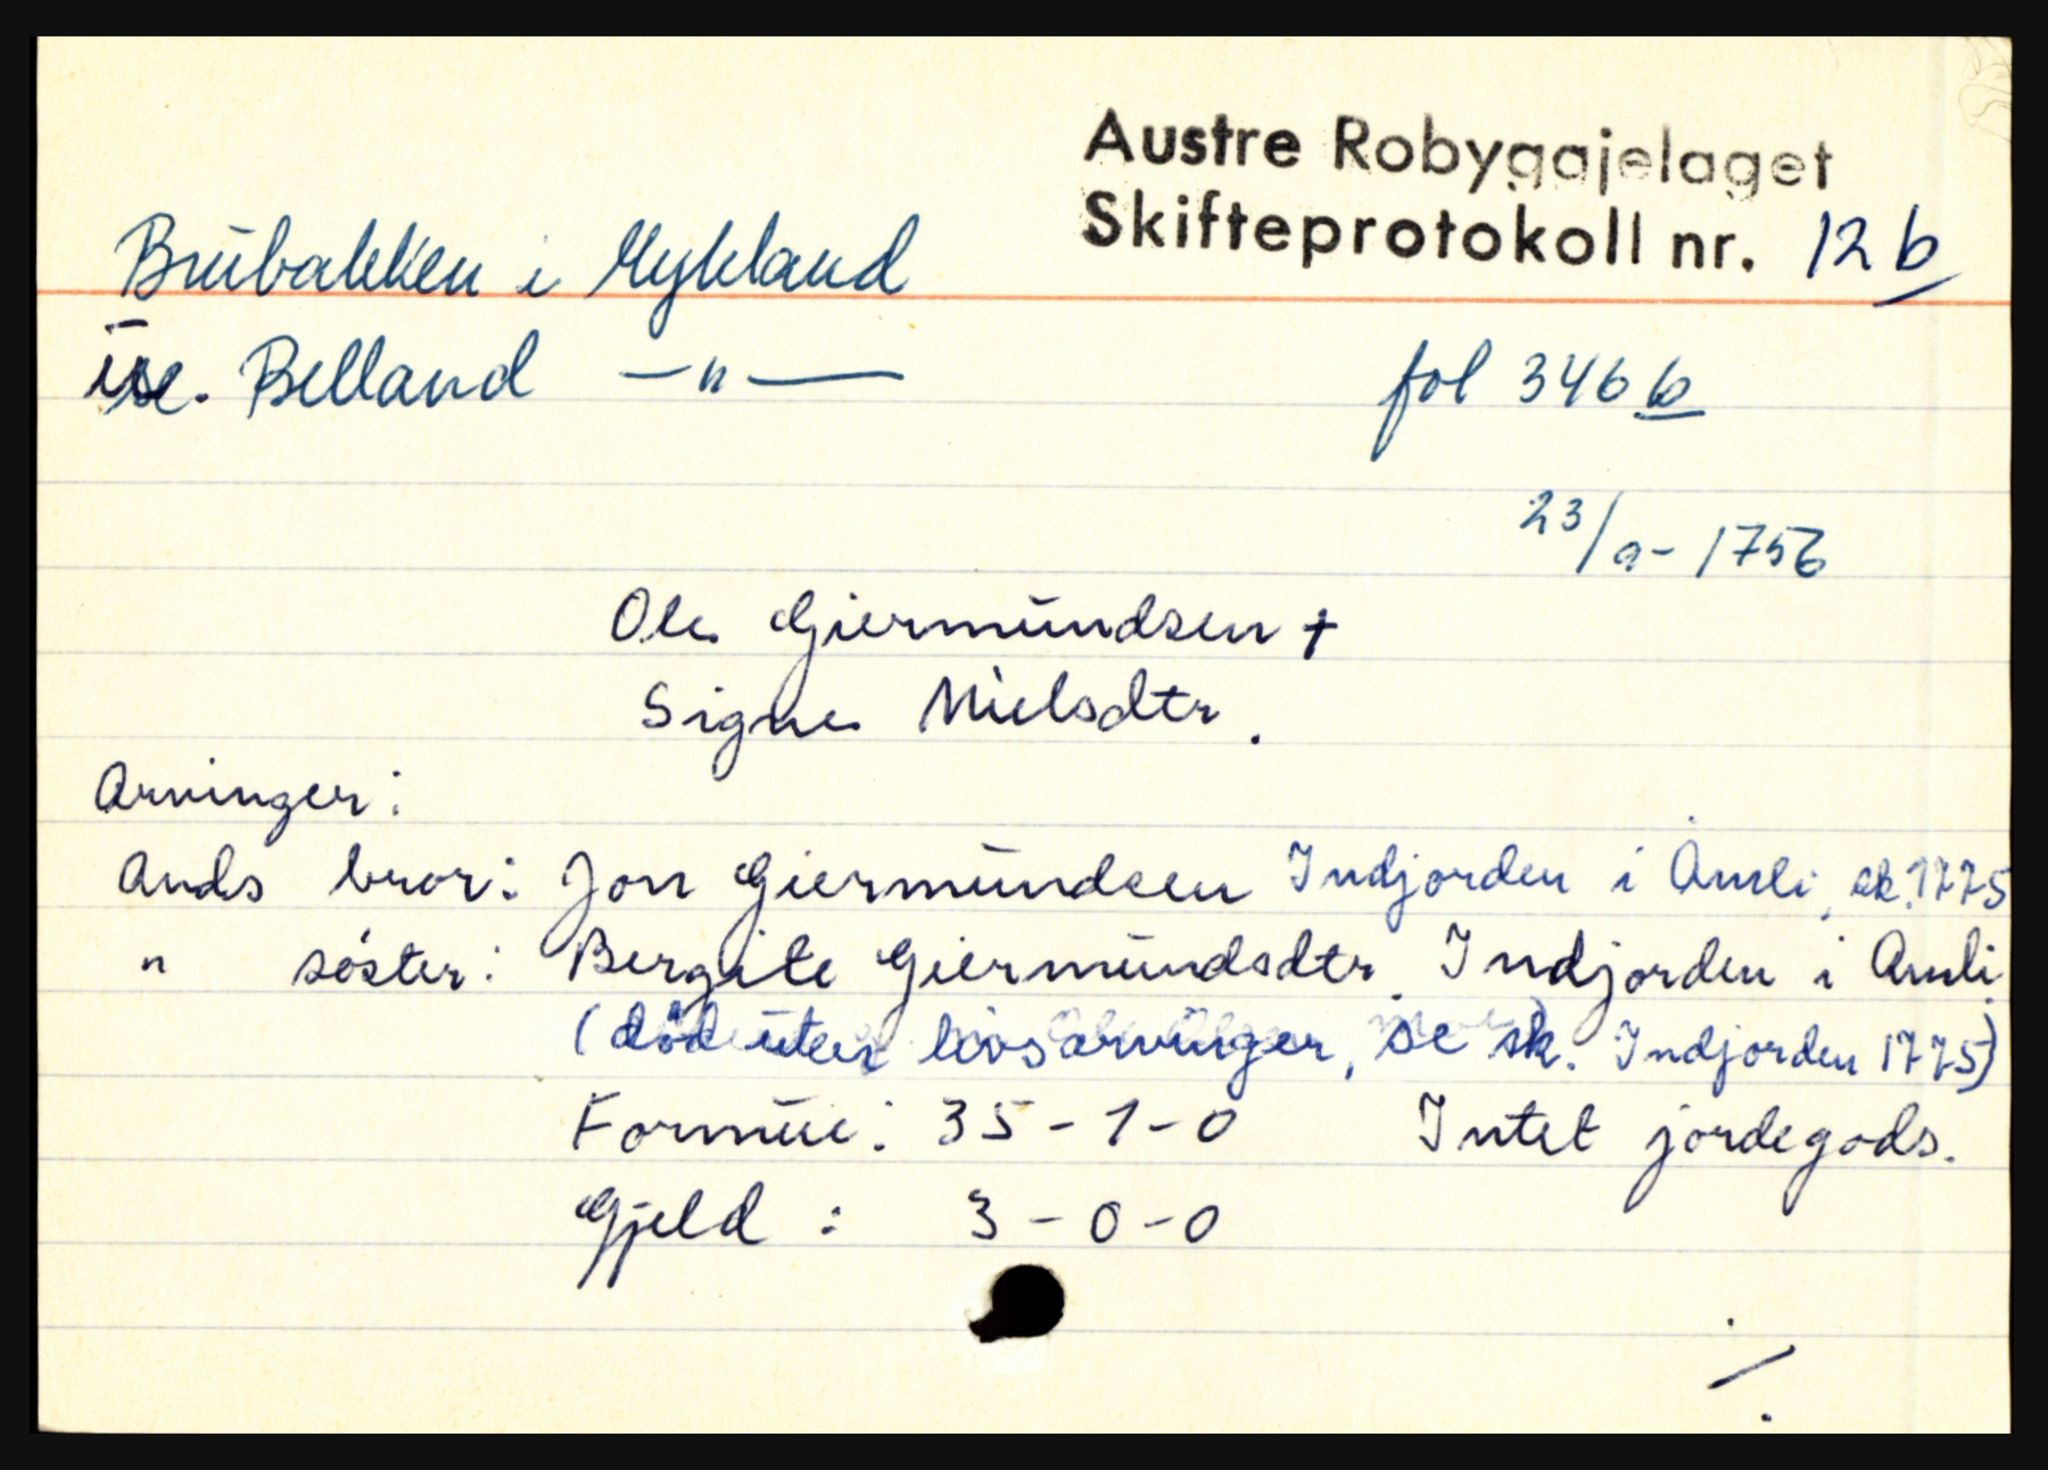 Austre Robygajelaget
Skifteprotokoll nr. 12 b
Brübakken i Mykland
Belland —"— fol 346 b
23/9-1756
Ole Giermündsen †
Signe Nielsdtr.
Arvinger:
Avds bror: Jon Giermündsen Indjorden i Åmli, sk. 1775
" søster: Bergite Giermündsdtr. Indjorden i Åmli
(död üten livsarvinger, se sk. Indjorden 1775)
Formüe: 35-1-0 Intet jordegods.
Gjeld : 3-0-0